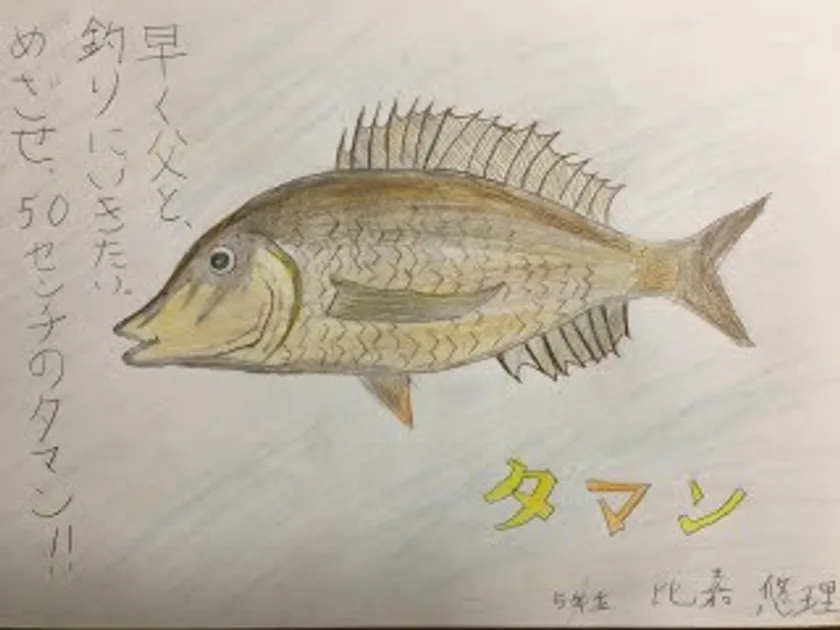 早く父と、
釣りにいきたい。
めざせ、50センチのタマン!!
タマン
5年生 比嘉 悠理